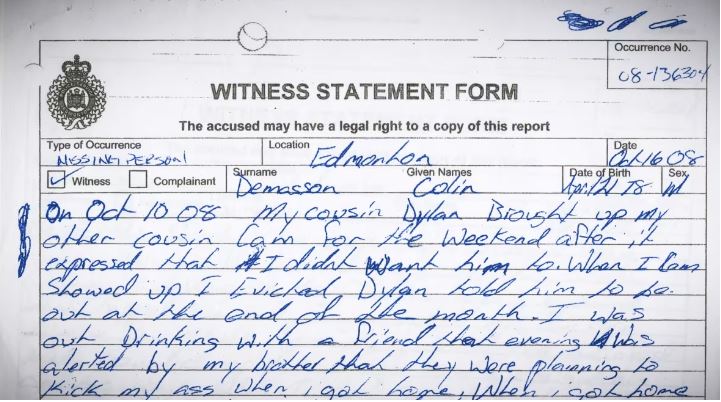 Occurrence No.
08-136304
WITNESS STATEMENT FORM
The accused may have a legal right to a copy of this report
Type of Occurrence Location Date
MISSING PERSON Edmonton Oct 16 08
Witness Complainant Surname Given Names Date of Birth Sex
Demasson Colin 78 M
On Oct 10 08 My cousin Dylan Brought up my
other cousin Cam for the weekend after it
expressed that I didnt want him to. When Cam
Showed up I Evicted Dylan told him to be
out at the end of the month. I was
out Drinking with a friend that evening I was
alerted by my brother that they were planning to
kick my ass when i got home, When i got home